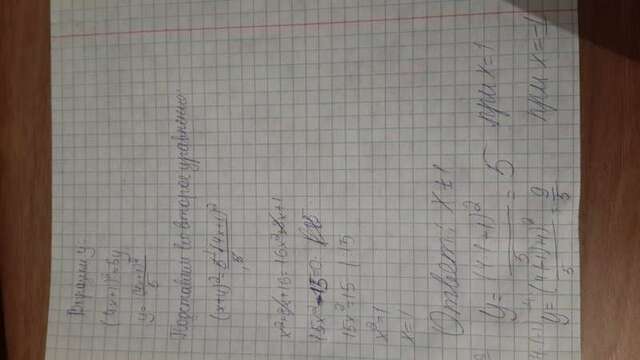 Выразим y
(4x+1)²=5y
y=(4x+1)²/5
Подставим во второе уравнение:
(x+4)²=5·(4x+1)²/5
x²+8x+16=16x²+8x+1
15x²-15=0
15x²=15 | :15
x²=1
x=1
Ответ: x±1
y=(4·1+1)²/5=5 при x=1
y=(4·(-1)+1)²/5=9/5 при x=-1